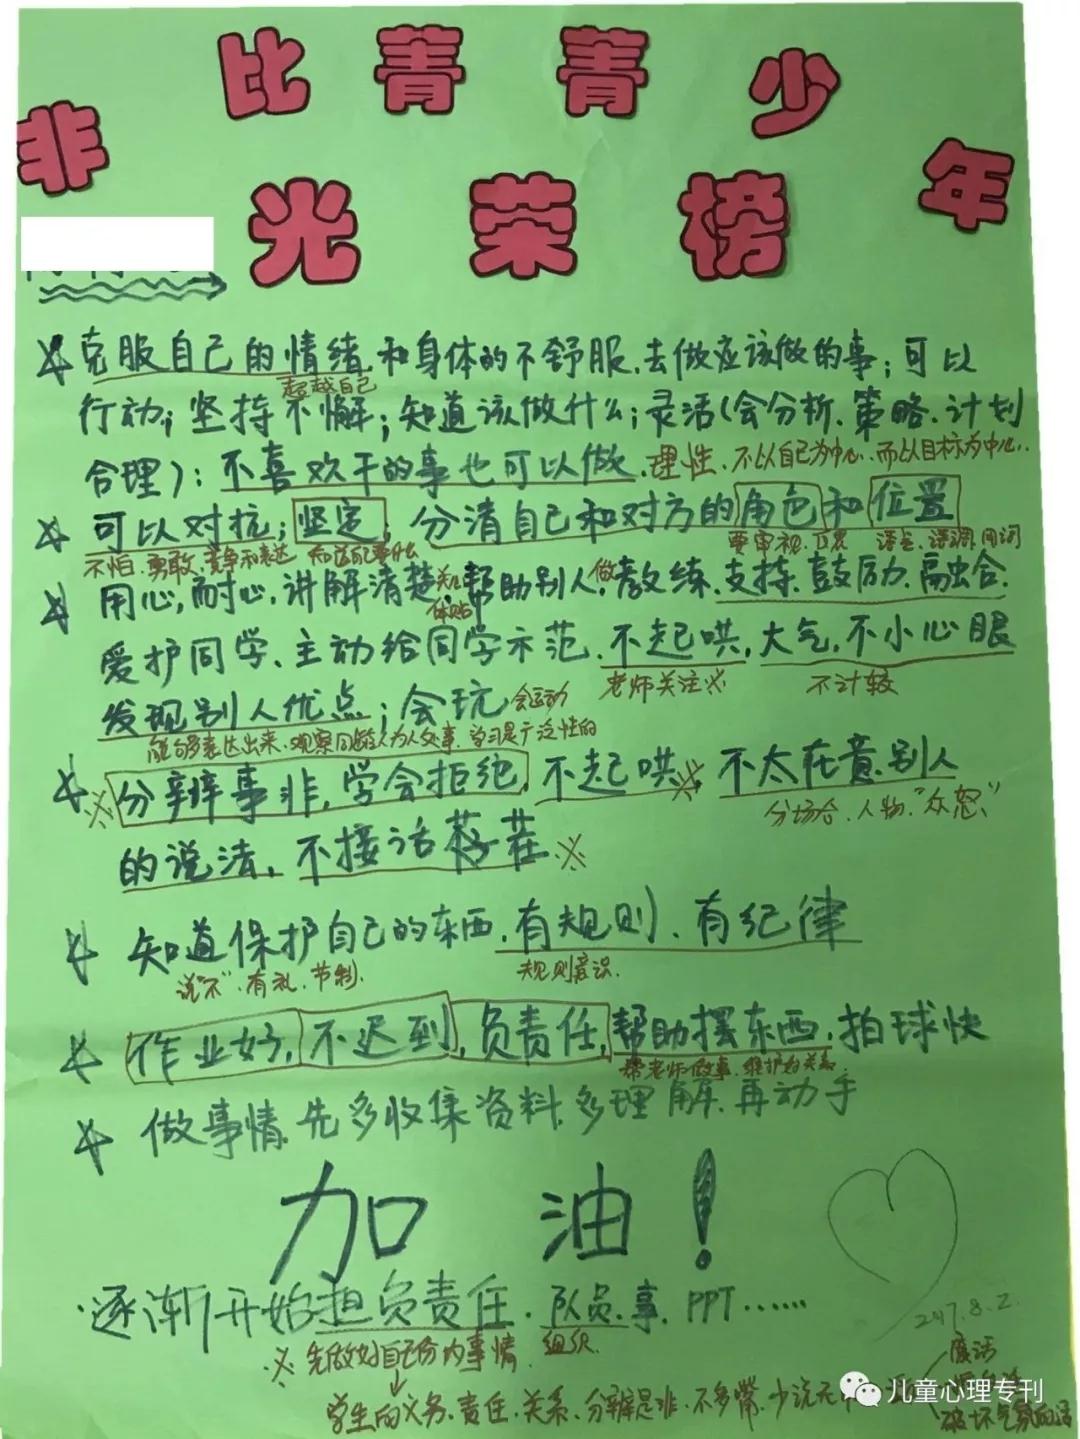 非比菁菁少年
光荣榜
克服自己的情绪和身体的不舒服.去做应该做的事；可以
超越自己
行动；坚持不懈；知道该做什么；灵活(会分析.策略.计划
合理)：不喜欢干的事也可以做.理性.不以自己为中心.而以目标为中心..
可以对抗；坚定；分清自己和对方的角色和位置
不怕.勇敢.竞争和表达 知道自己要什么 要审视. 语气.语调.用词
用心,耐心,讲解清楚.帮助别人,做教练.支持.鼓励.融合.
体贴
爱护同学、主动给同学示范.不起哄,大气,不小心眼
老师关注※ 不计较
发现别人优点；会玩 会运动
能够多表达出来.观察同龄人为人处事.学习是广泛性的
※分辨事非,学会拒绝,不起哄※ 不太在意别人
分场合.人物."众怒"
的说法,不接话茬※
知道保护自己的东西.有规则、有纪律
说"不".有礼.节制. 规则意识.
作业好,不迟到,负责任,帮助摆东西,拍球快
帮老师做事.维护好关系.
做事情.先多收集资料.多理解.再动手
加油！
·逐渐开始担负责任.队员.事.PPT……
2017.8.2.
※先做好自己份内事情. 组织.
废话
学生的义务.责任.关系.分辨是非.不多嘴.少说无
破坏气氛的话
儿童心理专刊